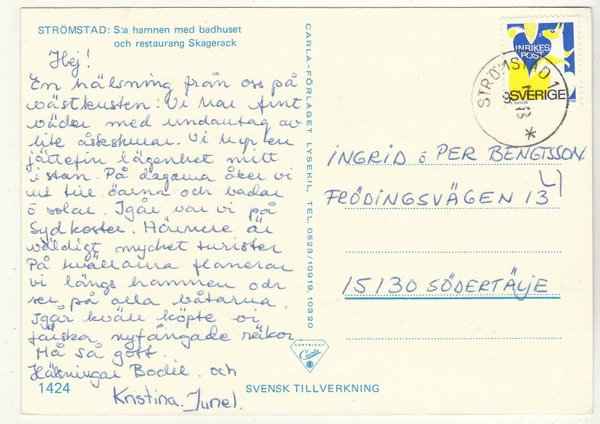 STRÖMSTAD: S:a hamnen med badhuset
och restaurang Skagerack
Hej!
En hälsning från oss på
västkusten. Vi har fint
väder med undantag av
lite åskskurar. Vi hyr en
jättefin lägenhet mitt
i stan. På dagarna åker vi
ut till öarna och badar
o solar. Igår var vi på
Sydkoster. Här är
väldigt mycket turister
På kvällarna flanerar
vi längs hamnen och
ser på alla båtarna.
Igår kväll köpte vi
färska, nyfångade räkor
Må så gott.
Hälsningar Bodil och
Kristina.
1424
SVENSK TILLVERKNING
CARLA-FÖRLAGET LYSEKIL, TEL. 0523/10919, 10320
COPYRIGHT
Carla
INRIKES
POST
SVERIGE
STRÖMSTAD 1
INGRID o PER BENGTSSON
FRÖDINGSVÄGEN 13
15130 SÖDERTÄLJE